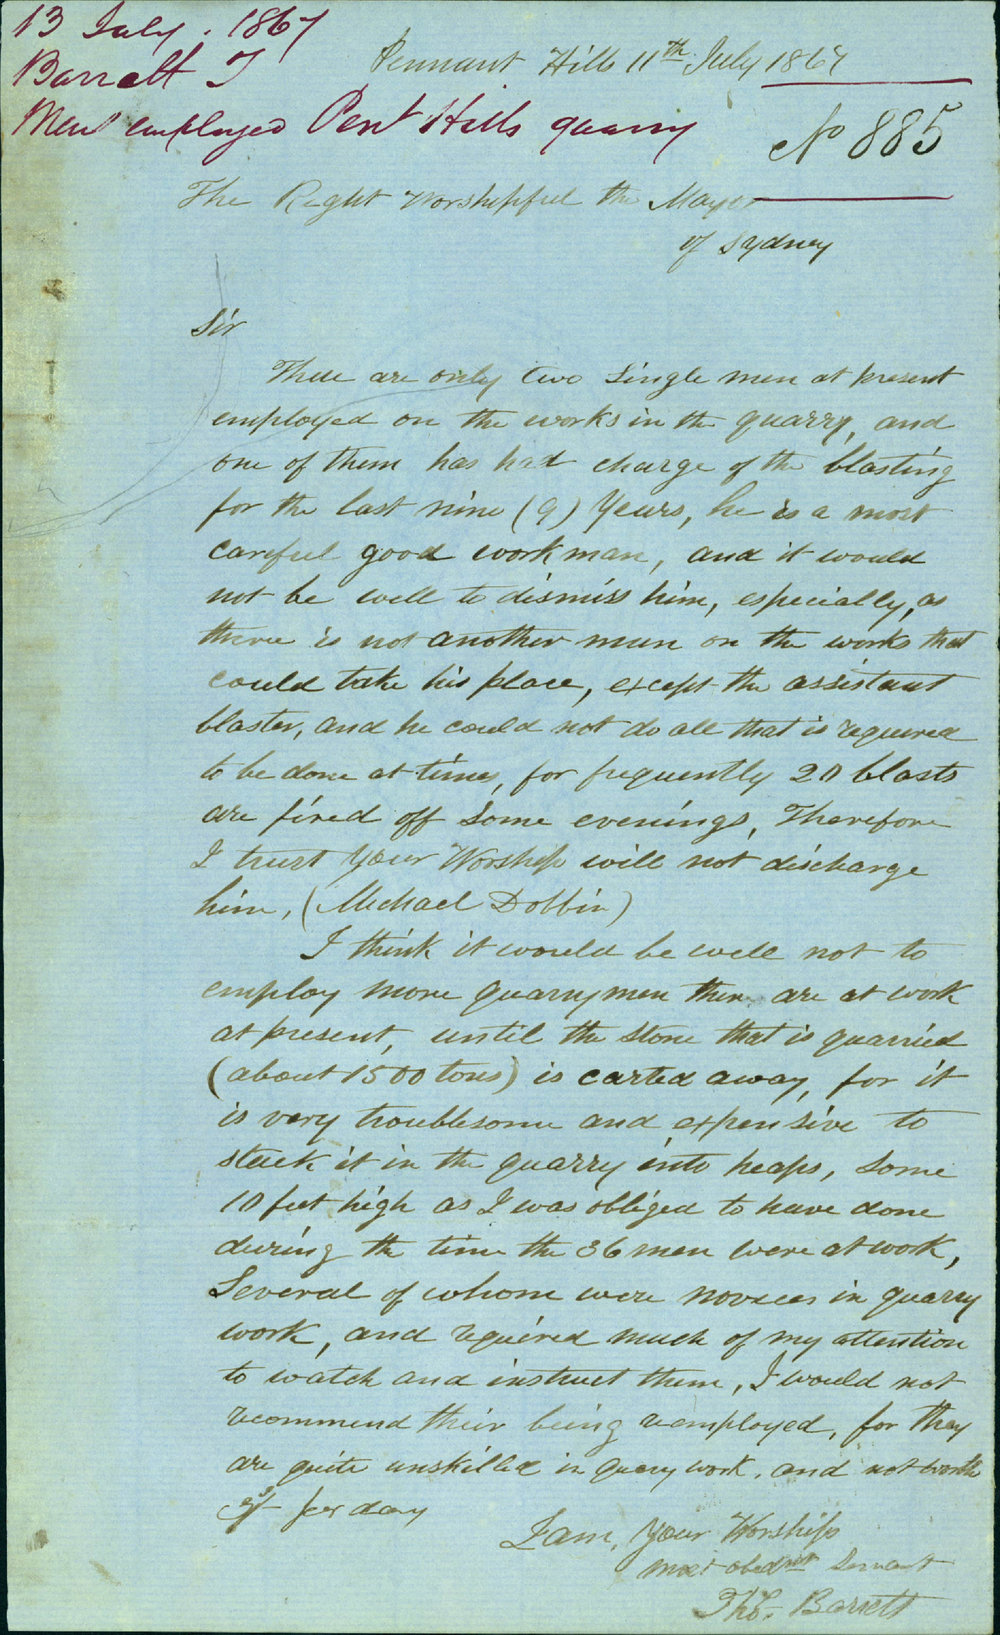 13 July. 1867
Barrett T
Men employed Pent Hills quarry
Pennant Hills 11th July 1867
No 885
The Right Worshipful the Mayor
of Sydney
Sir
There are only two single men at present
employed on the works in the quarry, and
one of them has had charge of the blasting
for the last nine (9) Years, he is a most
careful good workman, and it would
not be well to dismiss him, especially, as
there is not another man on the works that
could take his place, except the assistant
blaster, and he could not do all that is required
to be done at times, for frequently 20 blasts
are fired off some evenings, Therefore
I trust Your Worship will not discharge
him, (Michael Dobbin)
I think it would be well not to
employ more quarrymen then are at work
at present, until the stone that is quarried
(about 1500 tons) is carted away, for it
is very troublesome and expensive to
stack it in the quarry into heaps, some
10 feet high as I was obliged to have done
during the time the 36 men were at work,
Several of whom were novices in quarry
work, and required much of my attention
to watch and instruct them, I would not
recommend their being reemployed, for they
are quite unskilled in quarry work, and not worth
per day
I am, Your Worships
most obednt Servant
Thos. Barrett